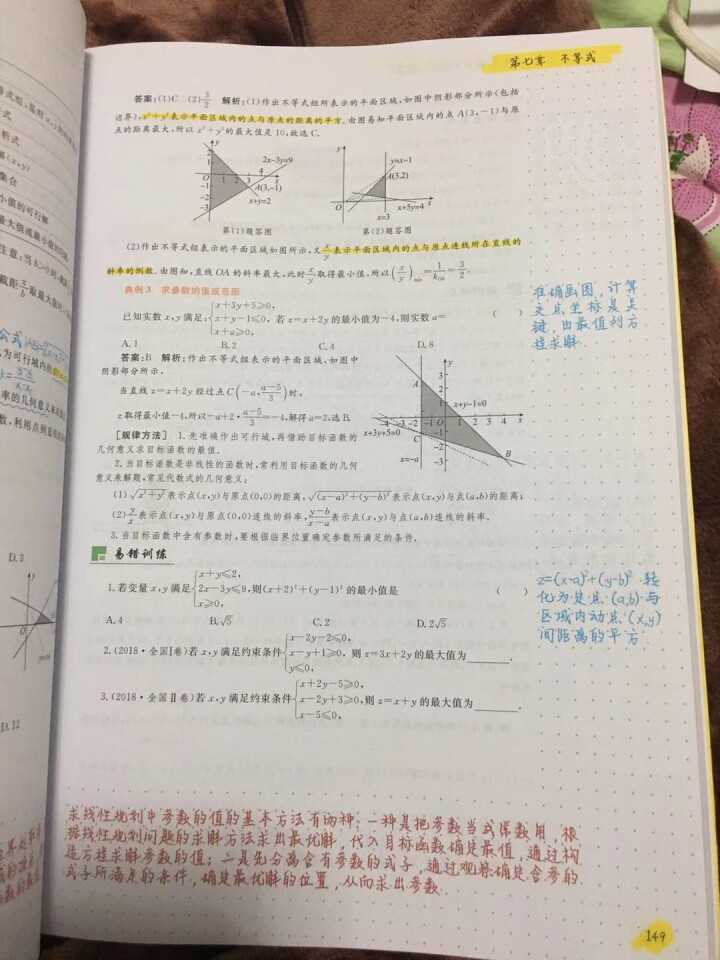 第七章 不等式
答案:(1)C (2)3/2 解析:(1)作出不等式组所表示的平面区域,如图中阴影部分所示(包括
边界),x²+y²表示平面区域内的点与原点的距离的平方.由图易知平面区域内的点 A(3,-1)与原
点的距离最大,所以 x²+y²的最大值是 10,故选 C.
2x-3y=9
A(3,-1)
x+y=2
第(1)题答图
y=x-1
A(3,2)
x+5y=4
x=3
第(2)题答图
(2)作出不等式组表示的平面区域如图所示,又x/y表示平面区域内的点与原点连线所在直线的
斜率的倒数.由图知,直线 OA 的斜率最大,此时x/y取得最小值,所以(x/y)min=1/kOA=3/2.
典例 3 求参数的值或范围
已知实数 x,y 满足:{x+3y+5≥0, x+y-1≤0, x+a≥0, 若 z=x+2y 的最小值为-4,则实数 a= ( )
A.1 B.2 C.4 D.8
答案:B 解析:作出不等式组表示的平面区域,如图中
阴影部分所示,
当直线 z=x+2y 经过点 C(-a,(a-5)/3)时,
z 取得最小值-4,所以-a+2·(a-5)/3=-4,解得 a=2,选 B.
x+y-1=0
x+3y+5=0
x=-a
[规律方法] 1.先准确作出可行域,再借助目标函数的
几何意义求目标函数的最值.
2.当目标函数是非线性的函数时,常利用目标函数的几何
意义来解题,常见代数式的几何意义:
(1)√(x²+y²)表示点(x,y)与原点(0,0)的距离,√((x-a)²+(y-b)²)表示点(x,y)与点(a,b)的距离;
(2)y/x表示点(x,y)与原点(0,0)连线的斜率,(y-b)/(x-a)表示点(x,y)与点(a,b)连线的斜率.
3.当目标函数中含有参数时,要根据临界位置确定参数所满足的条件.
易错训练
1.若变量 x,y 满足{x+y≤2, 2x-3y≤9, x≥0, 则(x+2)²+(y-1)² 的最小值是 ( )
A.4 B.√5 C.2 D.2√5
2.(2018·全国Ⅰ卷)若 x,y 满足约束条件{x-2y-2≤0, x-y+1≥0, y≤0, 则 z=3x+2y 的最大值为______.
3.(2018·全国Ⅱ卷)若 x,y 满足约束条件{x+2y-5≥0, x-2y+3≥0, x-5≤0, 则 z=x+y 的最大值为______.
准确画图,计算
交点坐标是关
键,由最值列方
程求解.
z=(x-a)²+(y-b)² 转
化为定点(a,b)与
区域内动点(x,y)
间距离的平方
求线性规划中参数的值的基本方法有两种:一种是把参数当成常数用,根
据线性规划问题的求解方法求出最优解,代入目标函数确定最值,通过构
造方程求解参数的值;二是先分离含有参数的式子,通过观察确定含参的
式子所满足的条件,确定最优解的位置,从而求出参数.
149